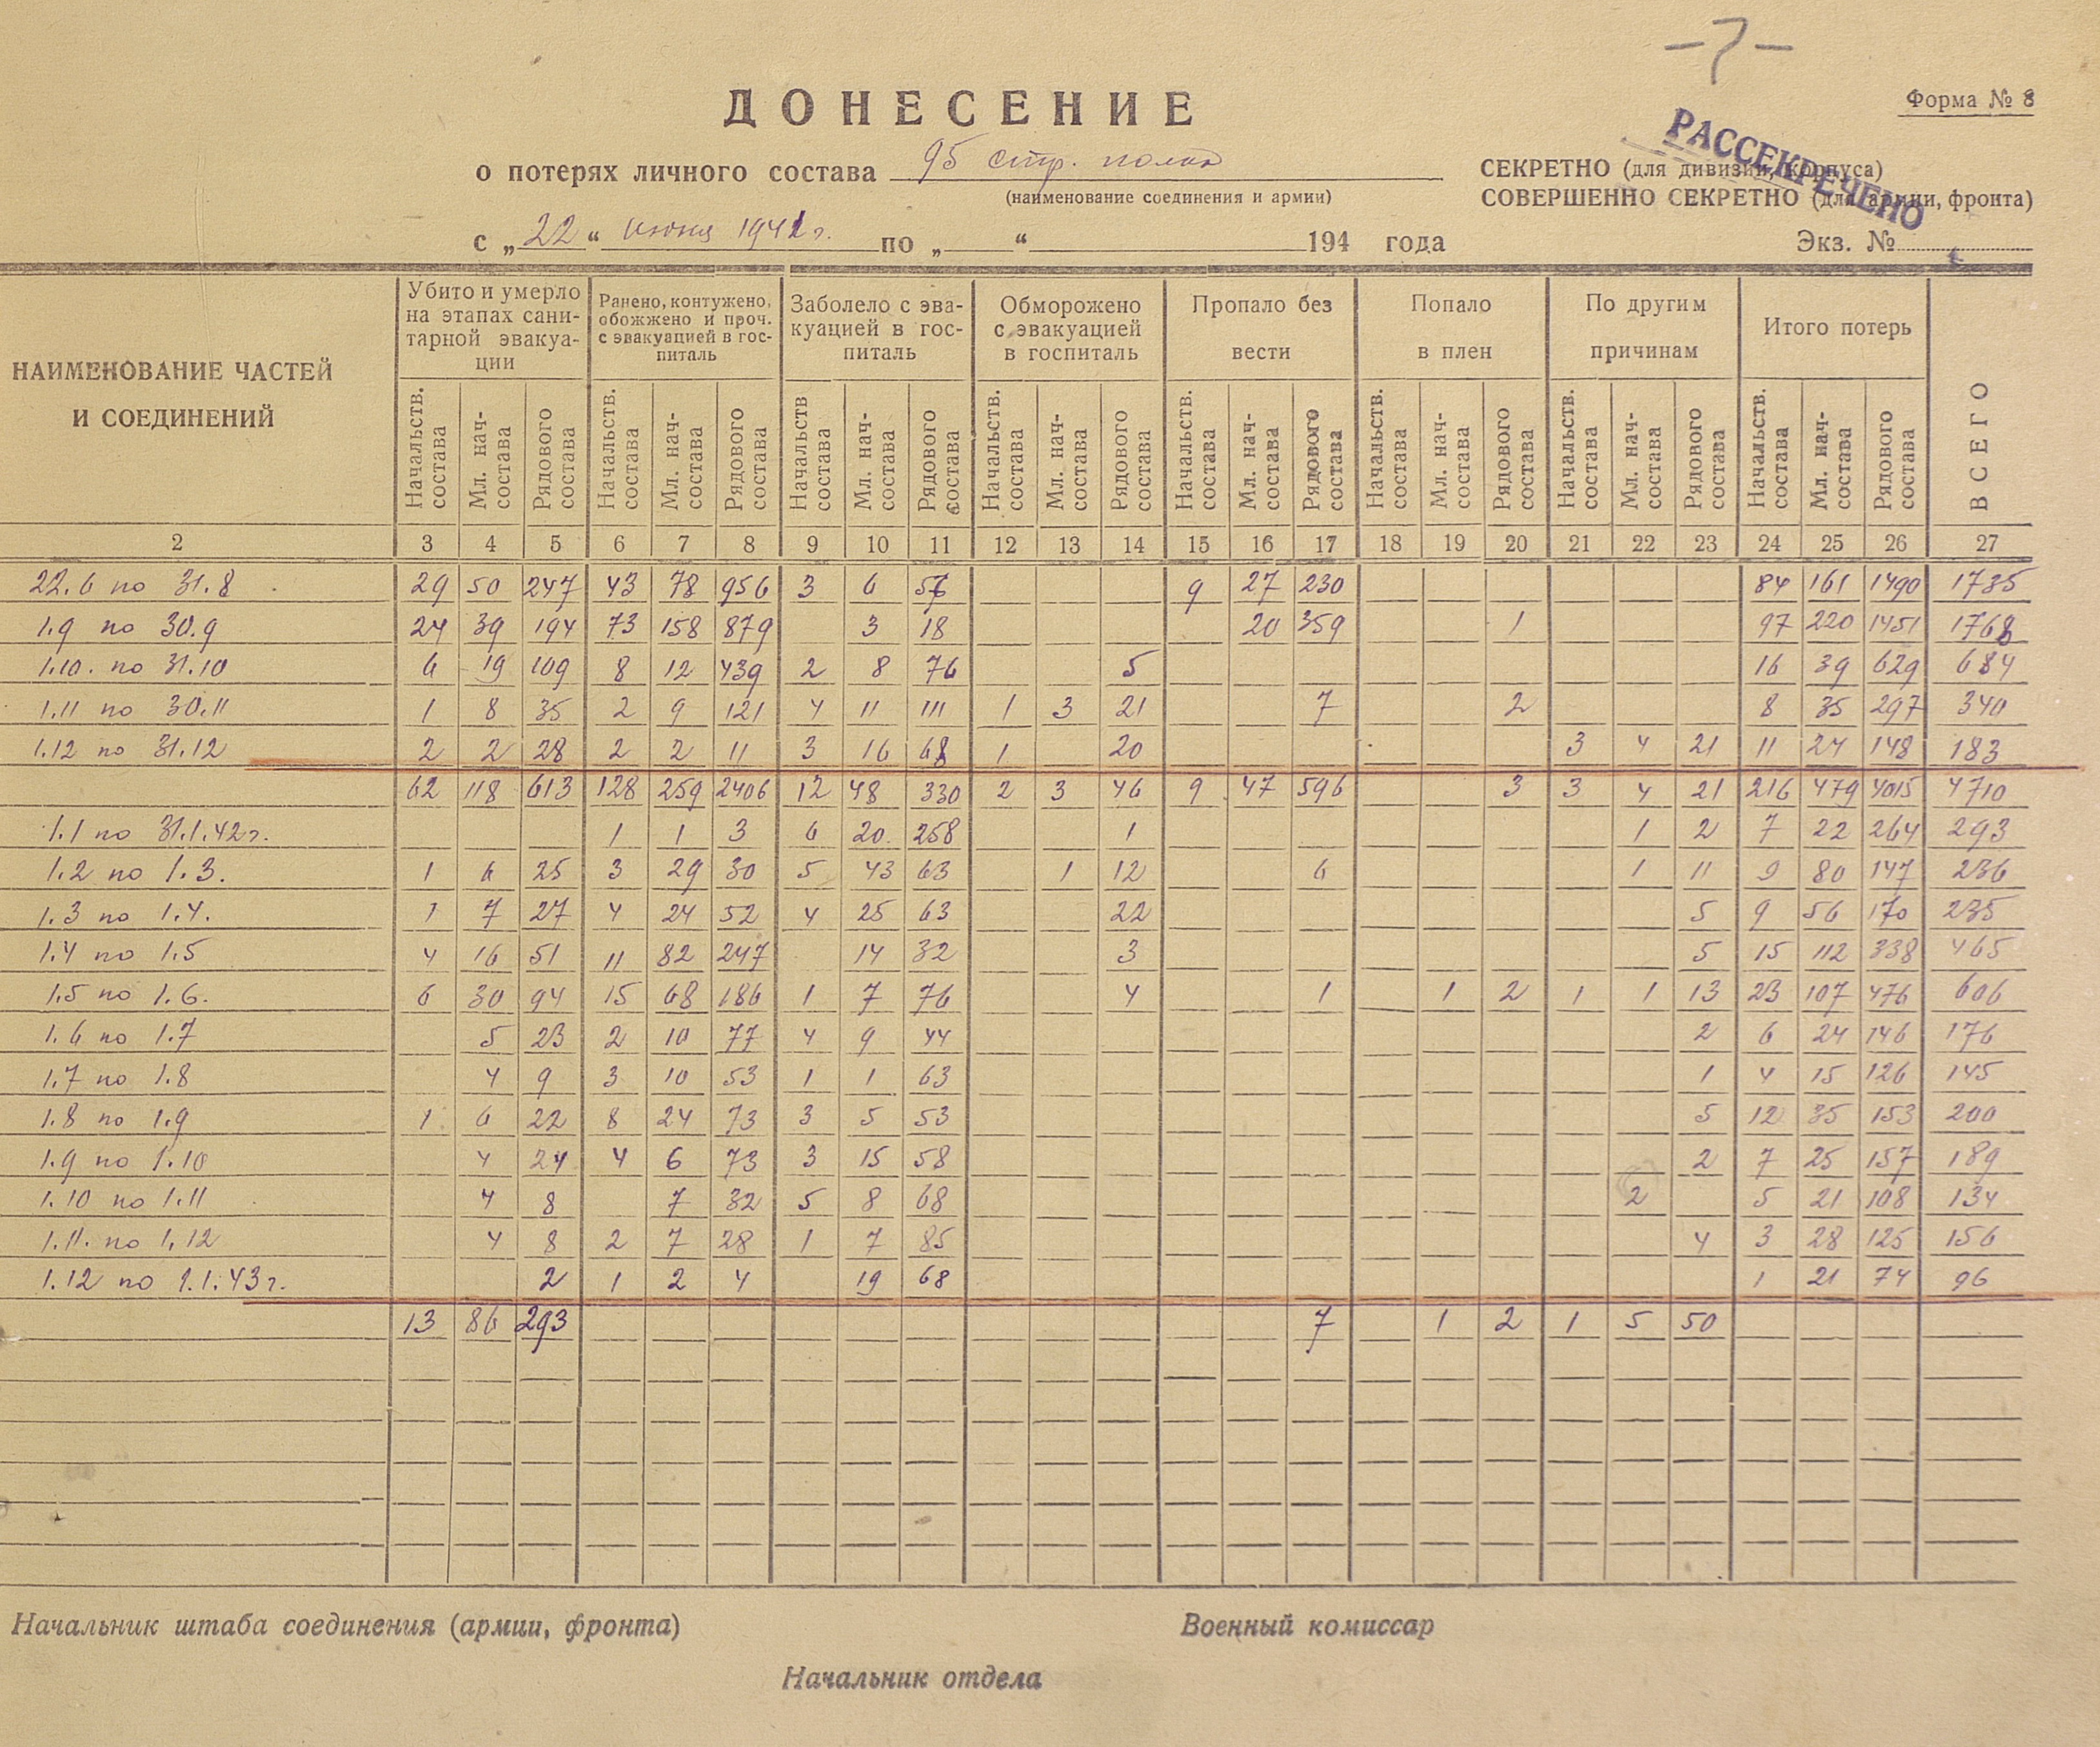 -7-
ДОНЕСЕНИЕ
Форма № 8
РАССЕКРЕЧЕНО
о потерях личного состава 95 стр. полка
(наименование соединения и армии)
СЕКРЕТНО (для дивизии, корпуса)
СОВЕРШЕННО СЕКРЕТНО (для армии, фронта)
с „22“ июня 1941 г. по „ “ 194 года
Экз. №
НАИМЕНОВАНИЕ ЧАСТЕЙ И СОЕДИНЕНИЙ
Убито и умерло на этапах санитарной эвакуации
Ранено, контужено, обожжено и проч. с эвакуацией в госпиталь
Заболело с эвакуацией в госпиталь
Обморожено с эвакуацией в госпиталь
Пропало без вести
Попало в плен
По другим причинам
Итого потерь
ВСЕГО
Начальств. состава Мл. начсостава Рядового состава Начальств. состава Мл. начсостава Рядового состава Начальств состава Мл. начсостава Рядового состава Начальств. состава Мл. начсостава Рядового состава Начальств. состава Мл. начсостава Рядового состава Начальств. состава Мл. начсостава Рядового состава Начальств. состава Мл. начсостава Рядового состава Начальств. состава Мл. начсостава Рядового состава
2 3 4 5 6 7 8 9 10 11 12 13 14 15 16 17 18 19 20 21 22 23 24 25 26 27
22.6 по 31.8 29 50 247 43 78 956 3 6 57 9 27 230 84 161 1490 1735
1.9 по 30.9 24 39 194 73 158 879 3 18 20 359 1 97 220 1451 1768
1.10. по 31.10 6 19 109 8 12 439 2 8 76 5 16 39 629 684
1.11 по 30.11 1 8 35 2 9 121 4 11 111 1 3 21 7 2 8 35 297 340
1.12 по 31.12 2 2 28 2 2 11 3 16 68 1 20 3 4 21 11 24 148 183
62 118 613 128 259 2406 12 48 330 2 3 46 9 47 596 3 3 4 21 216 479 4015 4710
1.1 по 31.1.42 г. 1 1 3 6 20 258 1 1 2 7 22 264 293
1.2 по 1.3. 1 6 25 3 29 30 5 43 63 1 12 6 1 11 9 80 147 236
1.3 по 1.4. 1 7 27 4 24 52 4 25 63 22 5 9 56 170 235
1.4 по 1.5 4 16 51 11 82 247 14 32 3 5 15 112 338 465
1.5 по 1.6. 6 30 94 15 68 186 1 7 76 4 1 1 2 1 1 13 23 107 476 606
1.6 по 1.7 5 23 2 10 77 4 9 44 2 6 24 146 176
1.7 по 1.8 4 9 3 10 53 1 1 63 1 4 15 126 145
1.8 по 1.9 1 6 22 8 24 73 3 5 53 5 12 35 153 200
1.9 по 1.10 4 24 4 6 73 3 15 58 2 7 25 157 189
1.10 по 1.11 4 8 7 32 5 8 68 2 5 21 108 134
1.11. по 1.12 4 8 2 7 28 1 7 85 4 3 28 125 156
1.12 по 1.1.43 г. 2 1 2 4 19 68 1 21 74 96
13 86 293 7 1 2 1 5 50
Начальник штаба соединения (армии, фронта)
Военный комиссар
Начальник отдела